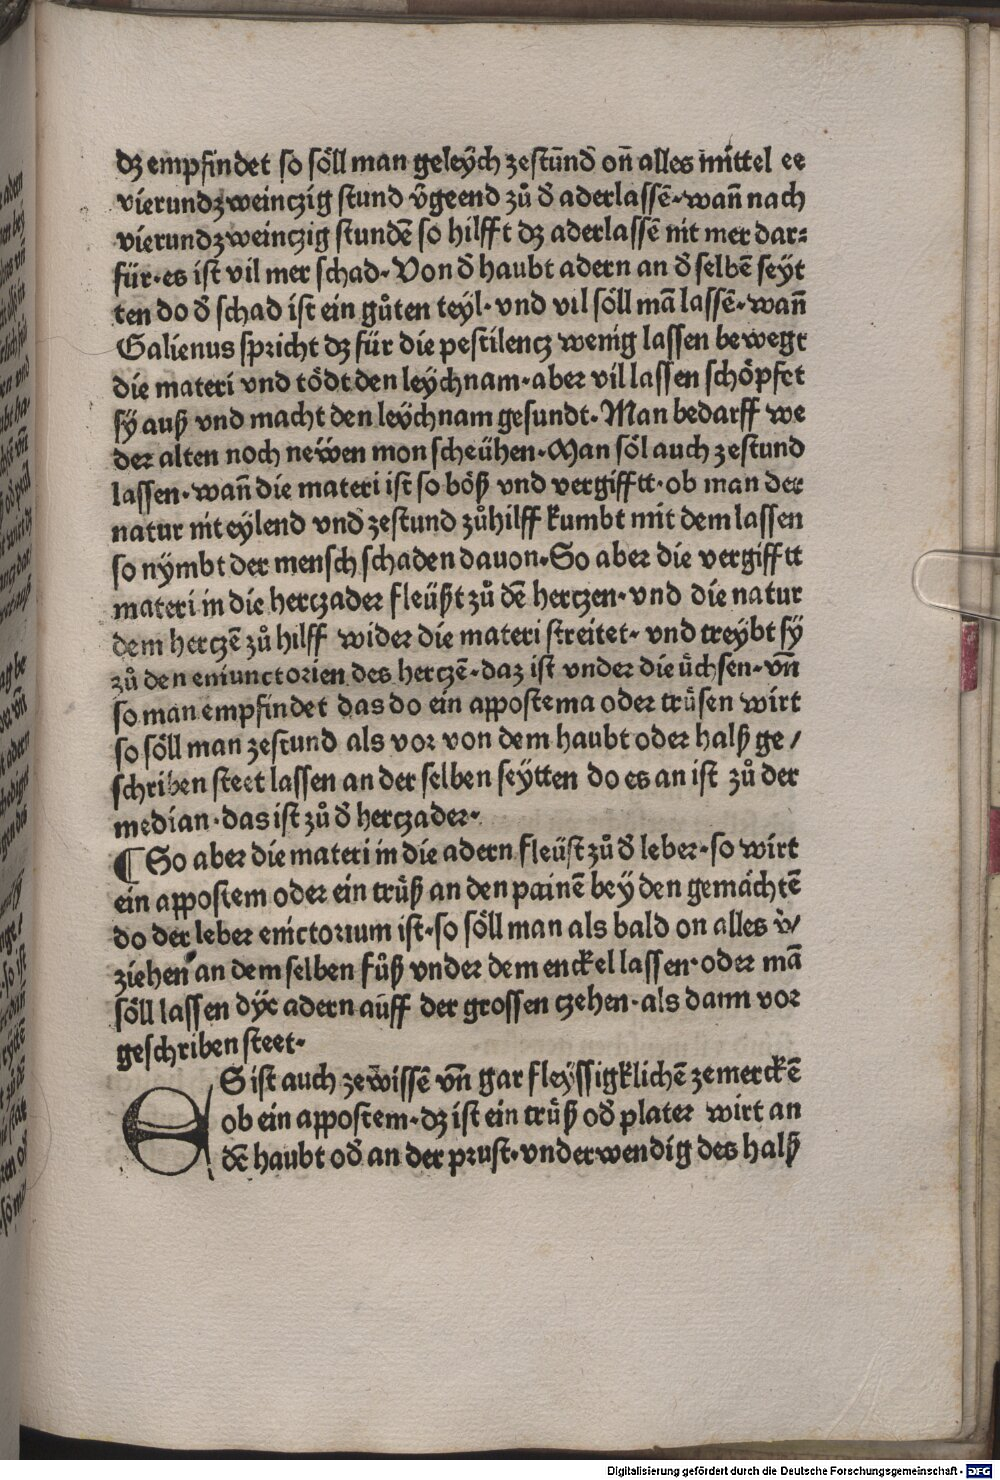 dz empfindet so söll man geleÿch zestūnd on̄ alles mittel ee
vierundzweinczig stund v̄geend zů d̄ aderlassē·wan̄ nach
vierundzweinczig stundē so hilfft dz aderlassē nit mer dar⸗
für·es ist vil mer schad·Von d̄ haubt adern an d̄ selbē seyt
ten do d̄ schad ist ein gůten teyl·vnd vil söll mā lassē·wan̄
Galienus spricht dz für die pestilencz wenig lassen bewegt
die materi vnd tödt den leÿchnam·aber vil lassen schöpfet
sÿ auß vnd macht den leÿchnam gesundt·Man bedarff we
der alten noch neẅen mon scheühen·Man söl auch zestund
lassen·wan̄ die materi ist so böß vnd vergifftt·ob man der
natur nit eylend vnd zestund zůhilff kumbt mit dem lassen
so nÿmbt der mensch schaden dauon·So aber die vergifftt
materi in die herczader fleüßt zů dē herczen·vnd die natur
dem herczē zů hilff wider die materi streitet·vnd treÿbt sÿ
zů den emunctorien des herczē·daz ist vnder die üchsen·vn̄
so man empfindet das do ein appostema oder trüsen wirt
so söll man zestund als vor von dem haubt oder halß ge/
schriben steet lassen an der selben seÿtten do es an ist zů der
median·das ist zů d̄ herczader·
¶ So aber die materi in die adern fleüst zů d̄ leber·so wirt
ein appostem oder ein trüß an den painē beÿ den gemächtē
do der leber emctorium ist·so söll man als bald on alles v̈/
ziehen an dem selben fůß vnder dem enckel lassen·oder mā
söll lassen dÿe adern aüff der grossen czehen·als dann vor
geschriben steet·
ES ist auch zeẅissē vn̄ gar fleÿssigklichē zemerckē
ob ein appostem·dz ist ein trüß od̄ plater wirt an
dē haubt od̄ an der prust·vnderwendig des halß
Digitalisierung gefördert durch die Deutsche Forschungsgemeinschaft - DFG